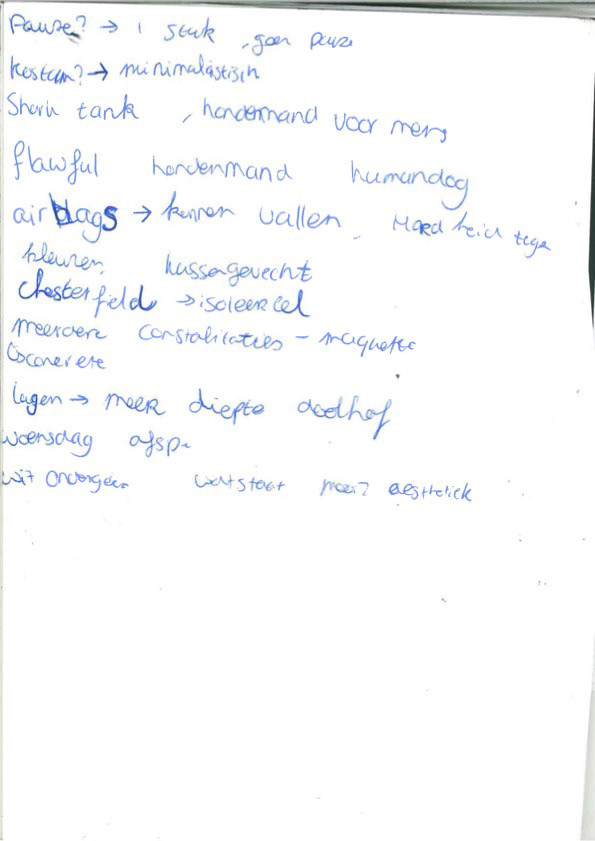 Pauze? → 1 stuk, geen pauze
kostum? → minimalastisch
Shark tank, hondenmand voor mens
flawful hondenmand humandog
airbags → kunnen vallen, Hard heid tegen
kleuren, kussengevecht
Chesterfield → isoleercel
meerdere constalitaties - maquette
Coconerete
lagen → meer diepte doolhof
woensdag afspr
wit onder wat staat mooi? aesthetick